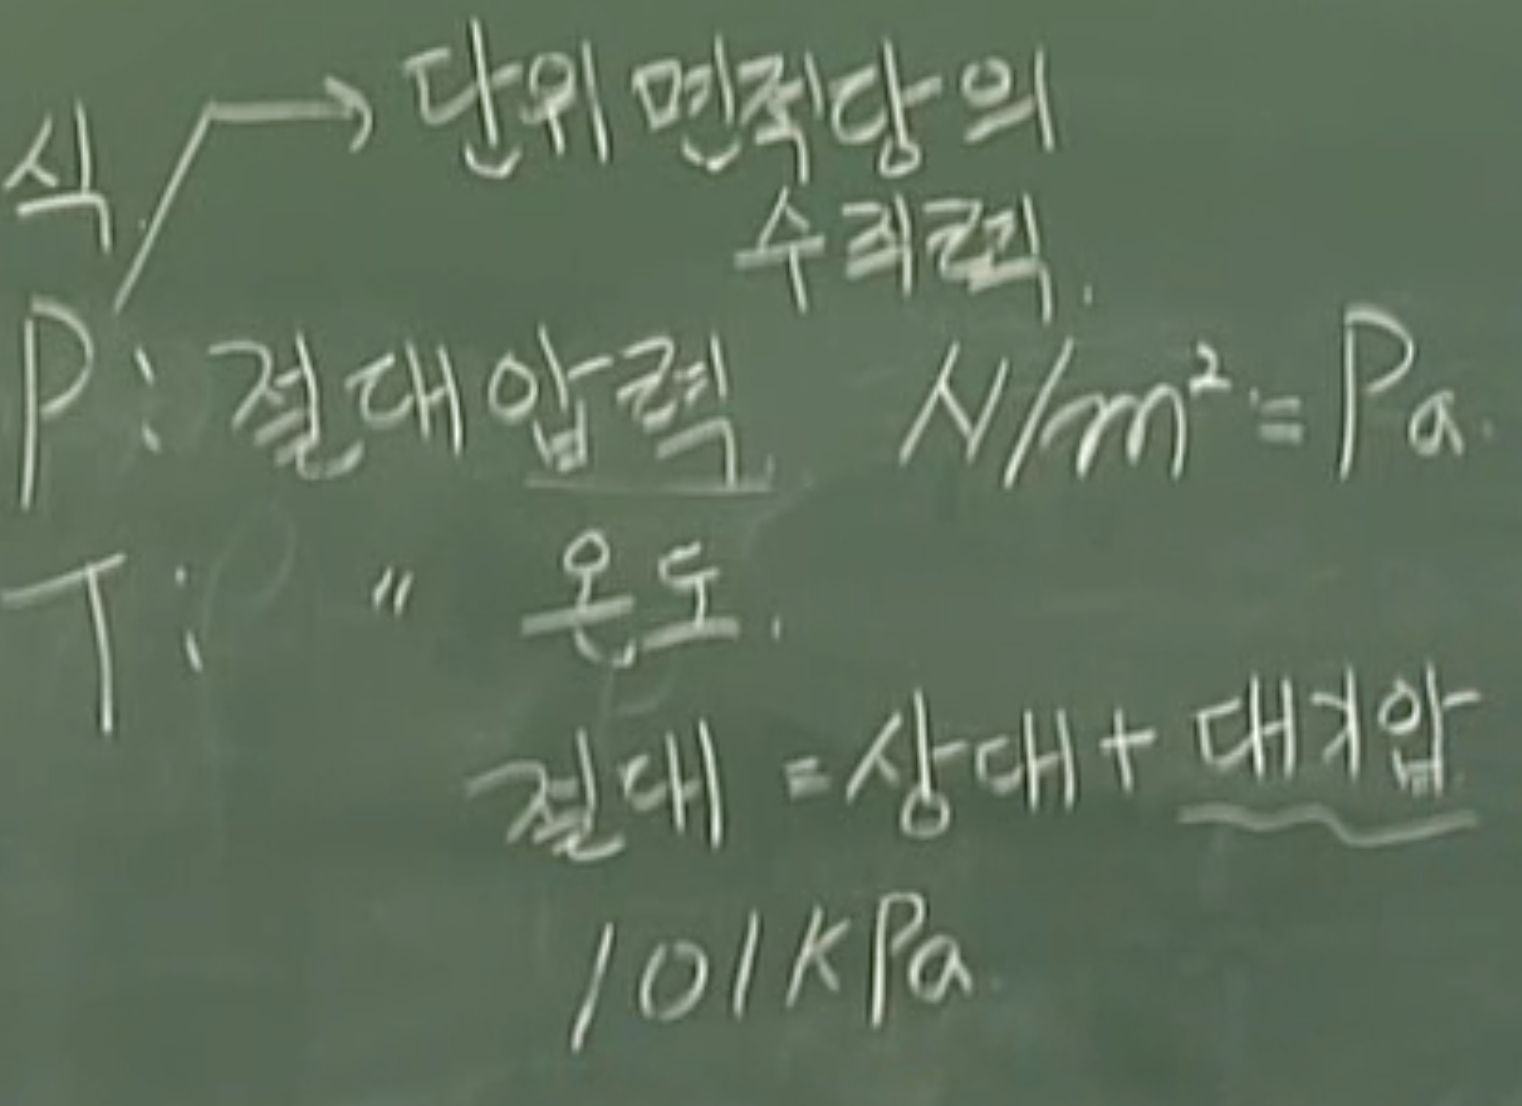 식 → 단위 면적당의
수직력.
P : 절대압력 N/m² = Pa.
T : " 온도.
절대 = 상대 + 대기압
101kPa.